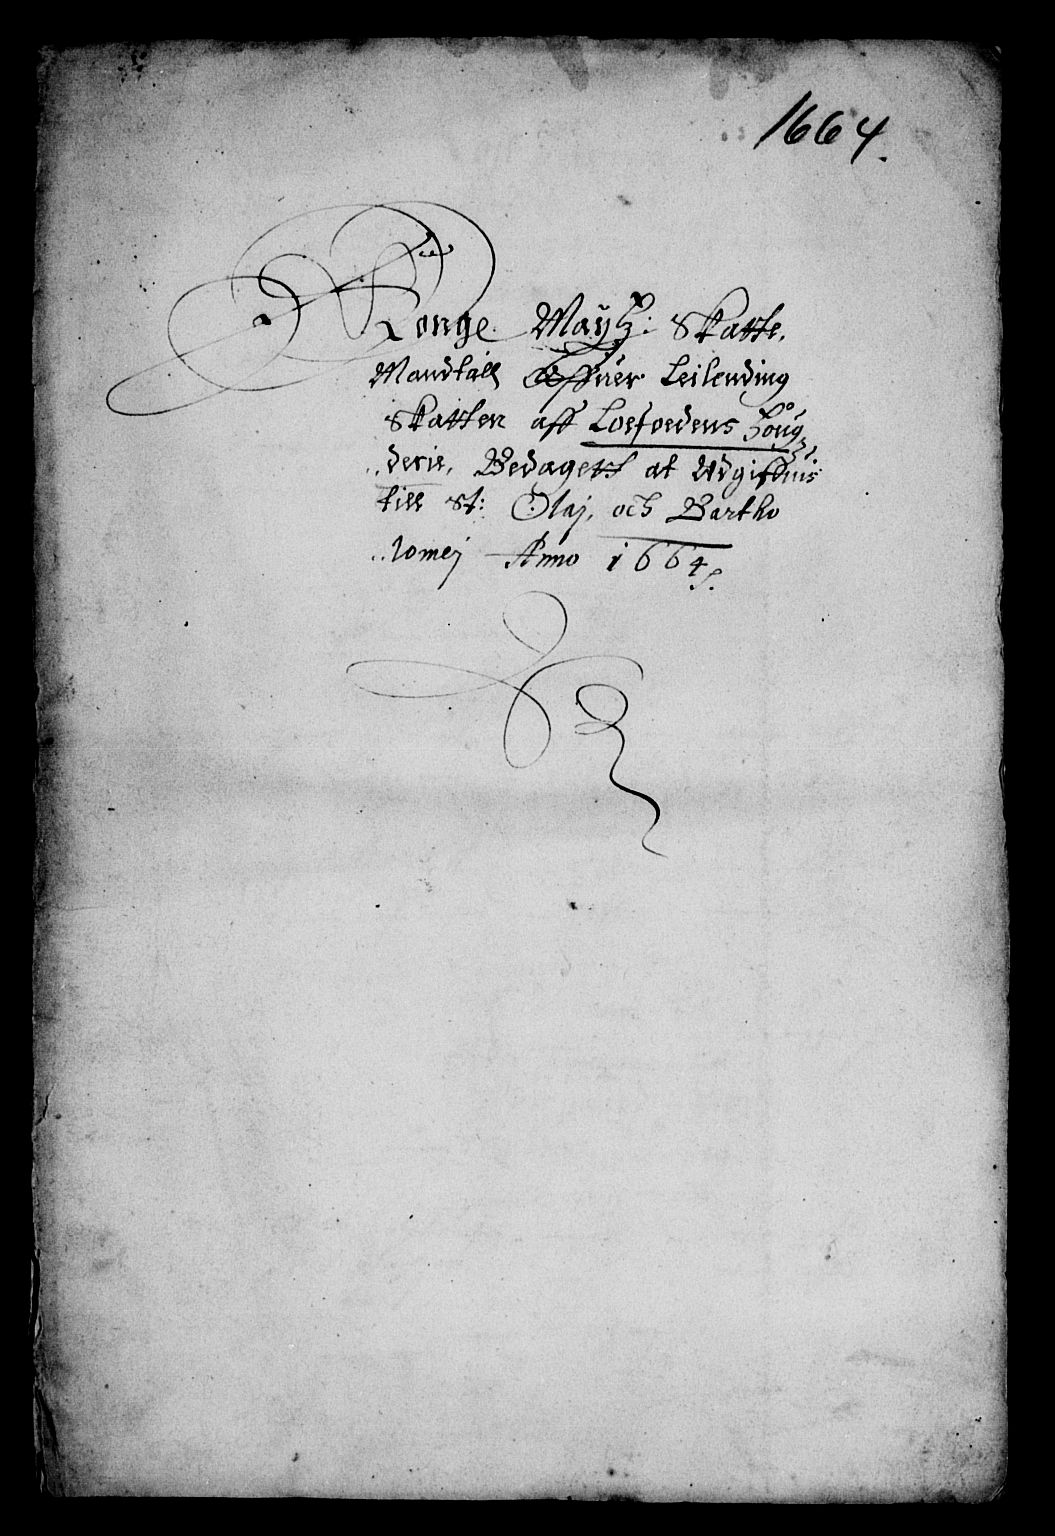 1664.
Konge Maytz: Skatte,
Mandtall offuer Leilending
Skatten aff Loefoedens Foug
derie, Bedagett at Udgifuis
till St: Olaj, och Bartho
lomej Anno 1664